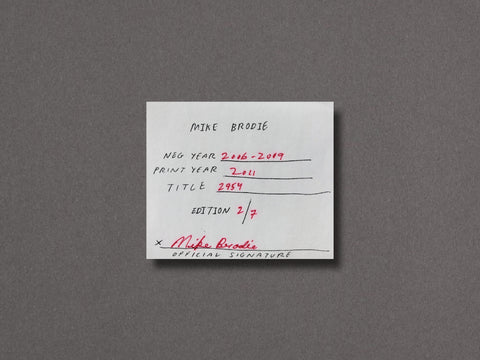 MIKE BRODIE
NEG YEAR 2006-2009
PRINT YEAR 2011
TITLE 2954
EDITION 2/7
x Mike Brodie
OFFICIAL SIGNATURE